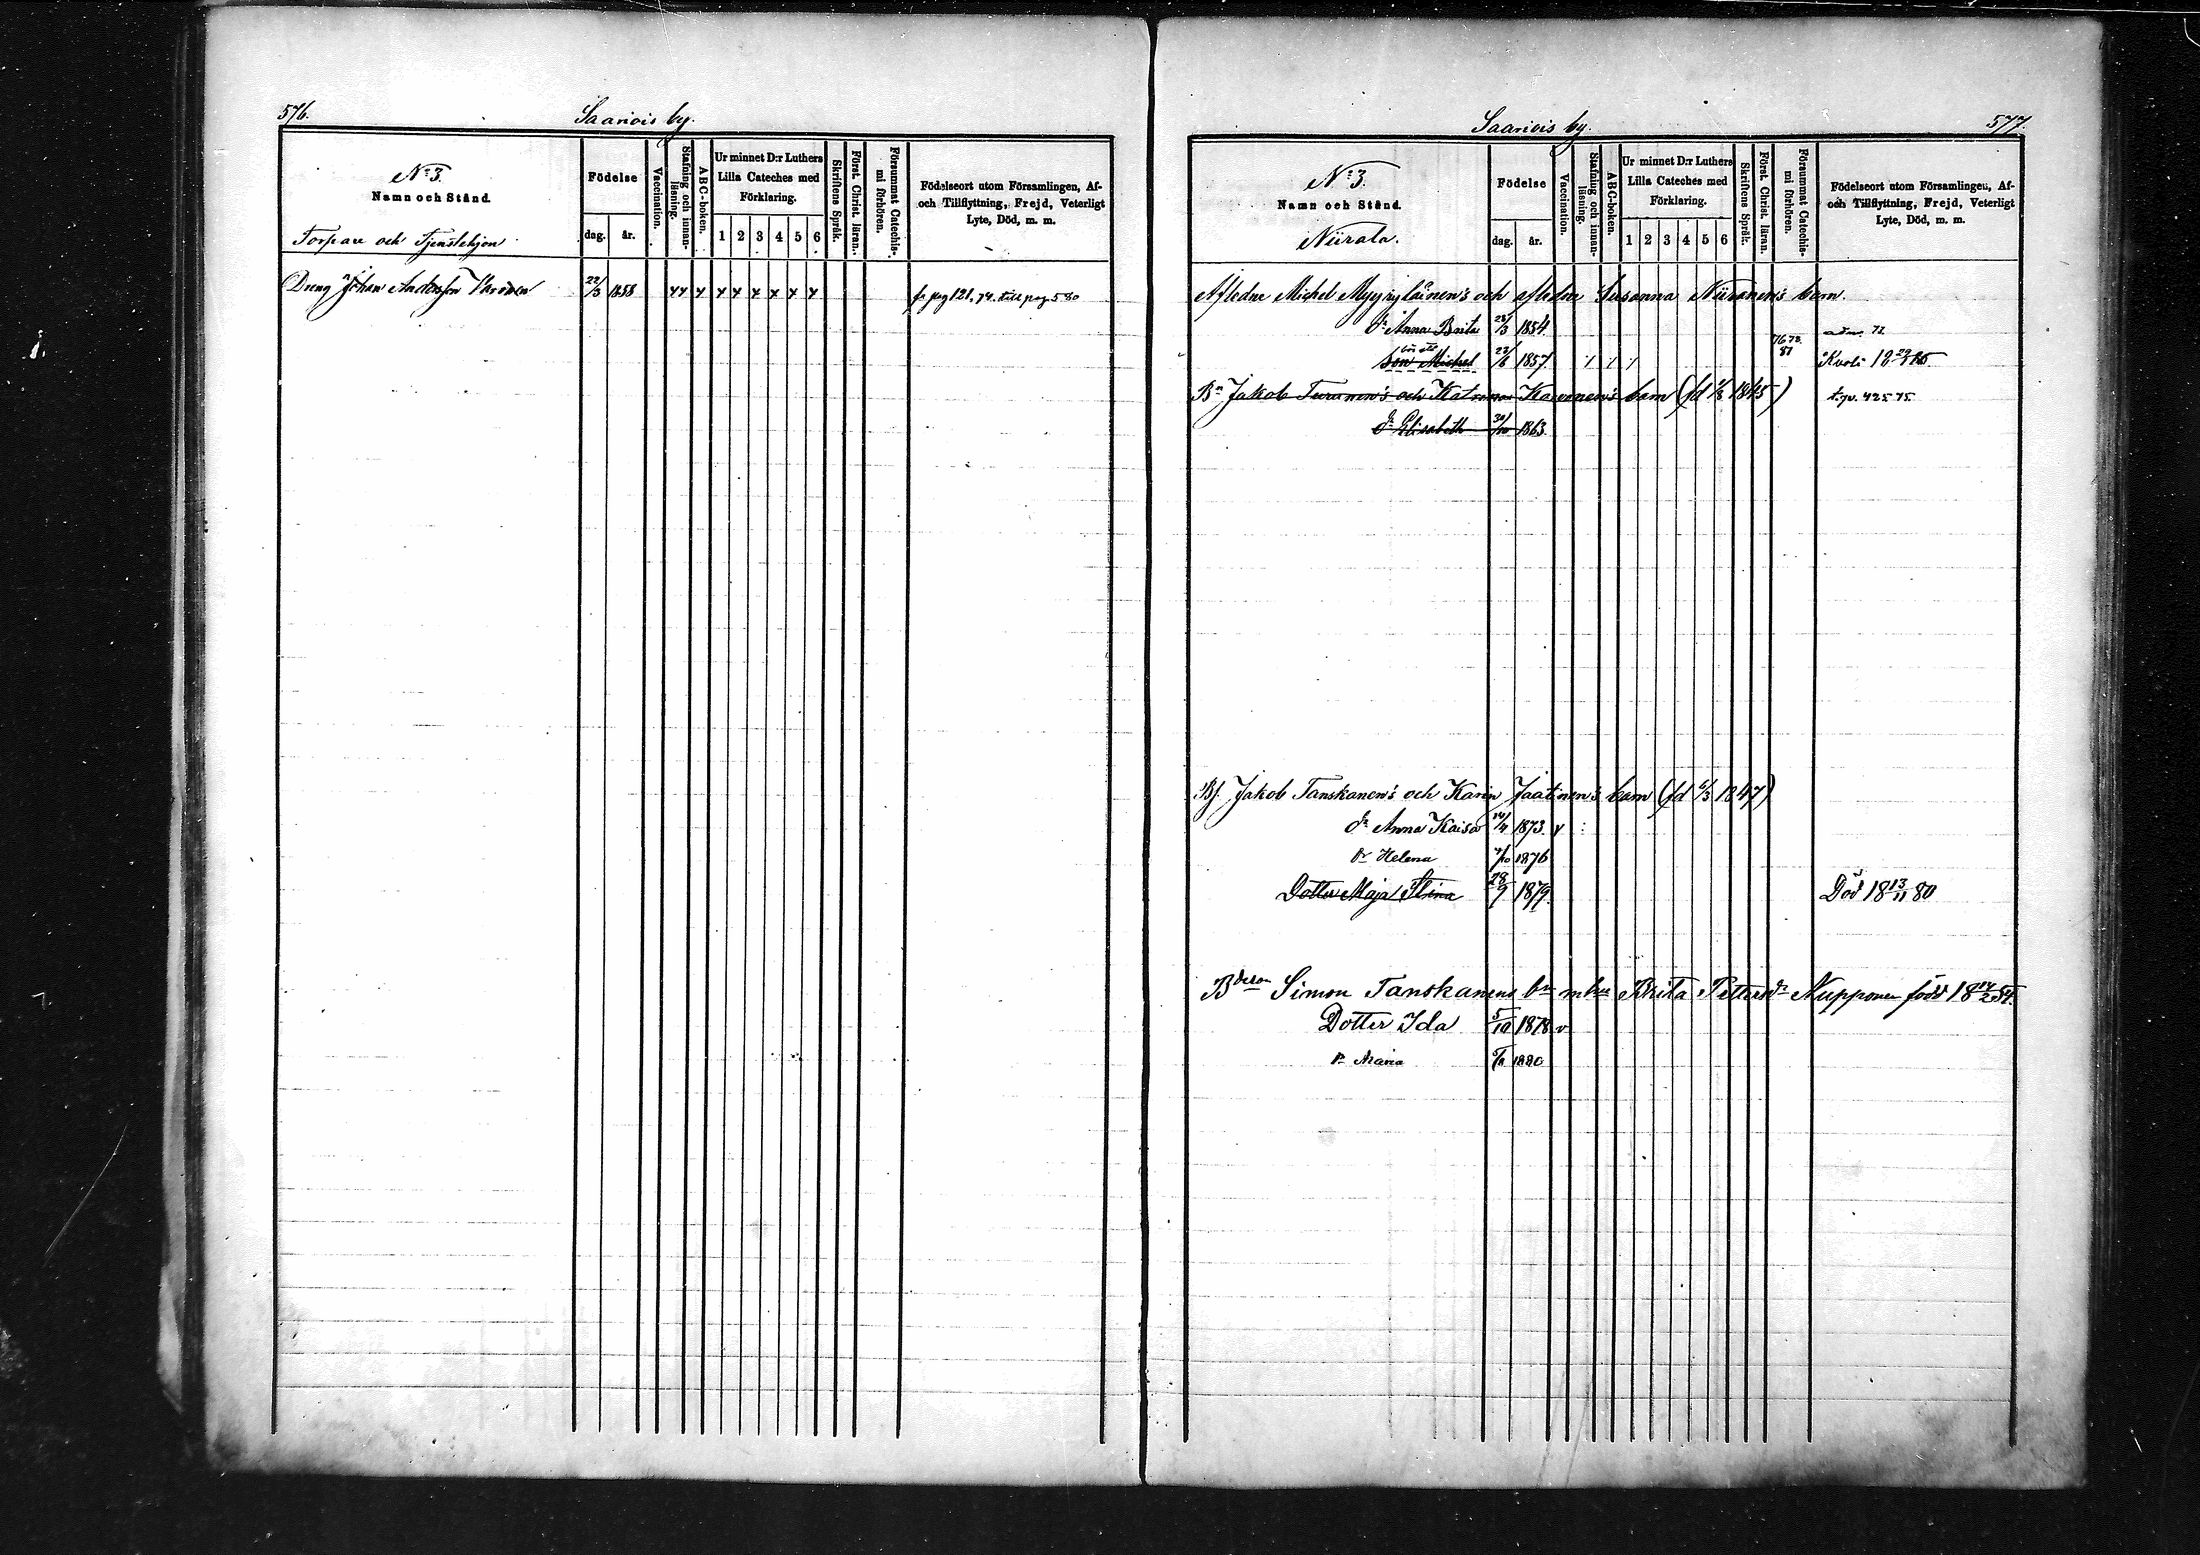 576.
Saariois by.
N:o 3.
Namn och Stånd.
Torpare och Tjenstehjon
Födelse
dag. år.
Vaccination.
Stafning och innan-läsning.
ABC-boken.
Ur minnet D:r Luthers Lilla Cateches med Förklaring.
1 2 3 4 5 6
Skriftens Språk.
Först. Christ. läran.
Försummat Catechis-mi förhören.
Födelseort utom Församlingen, Af- och Tillflyttning, Frejd, Veterligt Lyte, Död, m. m.
Dreng Johan Andersson 22/3 1858 fr pag 121, 74. till pag 580
577.
Saariois by.
N:o 3.
Namn och Stånd.
Niirala.
Födelse
dag. år.
Vaccination.
Stafning och innan-läsning.
ABC-boken.
Ur minnet D:r Luthers Lilla Cateches med Förklaring.
1 2 3 4 5 6
Skriftens Språk.
Först. Christ. läran.
Försummat Catechis-mi förhören.
Födelseort utom Församlingen, Af- och Tillflyttning, Frejd, Veterligt Lyte, Död, m. m.
Aflidne Michel Myyryläinen's och aflidne Susanna Niiranen's barn.
dr Anna Brita 28/3 1854.
son Michel 1857. 76 78 81
Bn Jakob Turunen's och Katrina 1845) 425 75
dr Elisabeth 30/10 1863.
Bj. Jakob Tanskanen's och Karin Jaatinen's barn (fd 6/3 1847)
dr Anna Kaisa 1873.
dr Helena 1876
Dotter Maja Stina 28/7 1879. Död 18 13/11 80
Simon Tanskanens Brita Pettersdr Nupponen född 18 14/2 54.
Dotter Ida 5/10 1878
dr Maria 1880